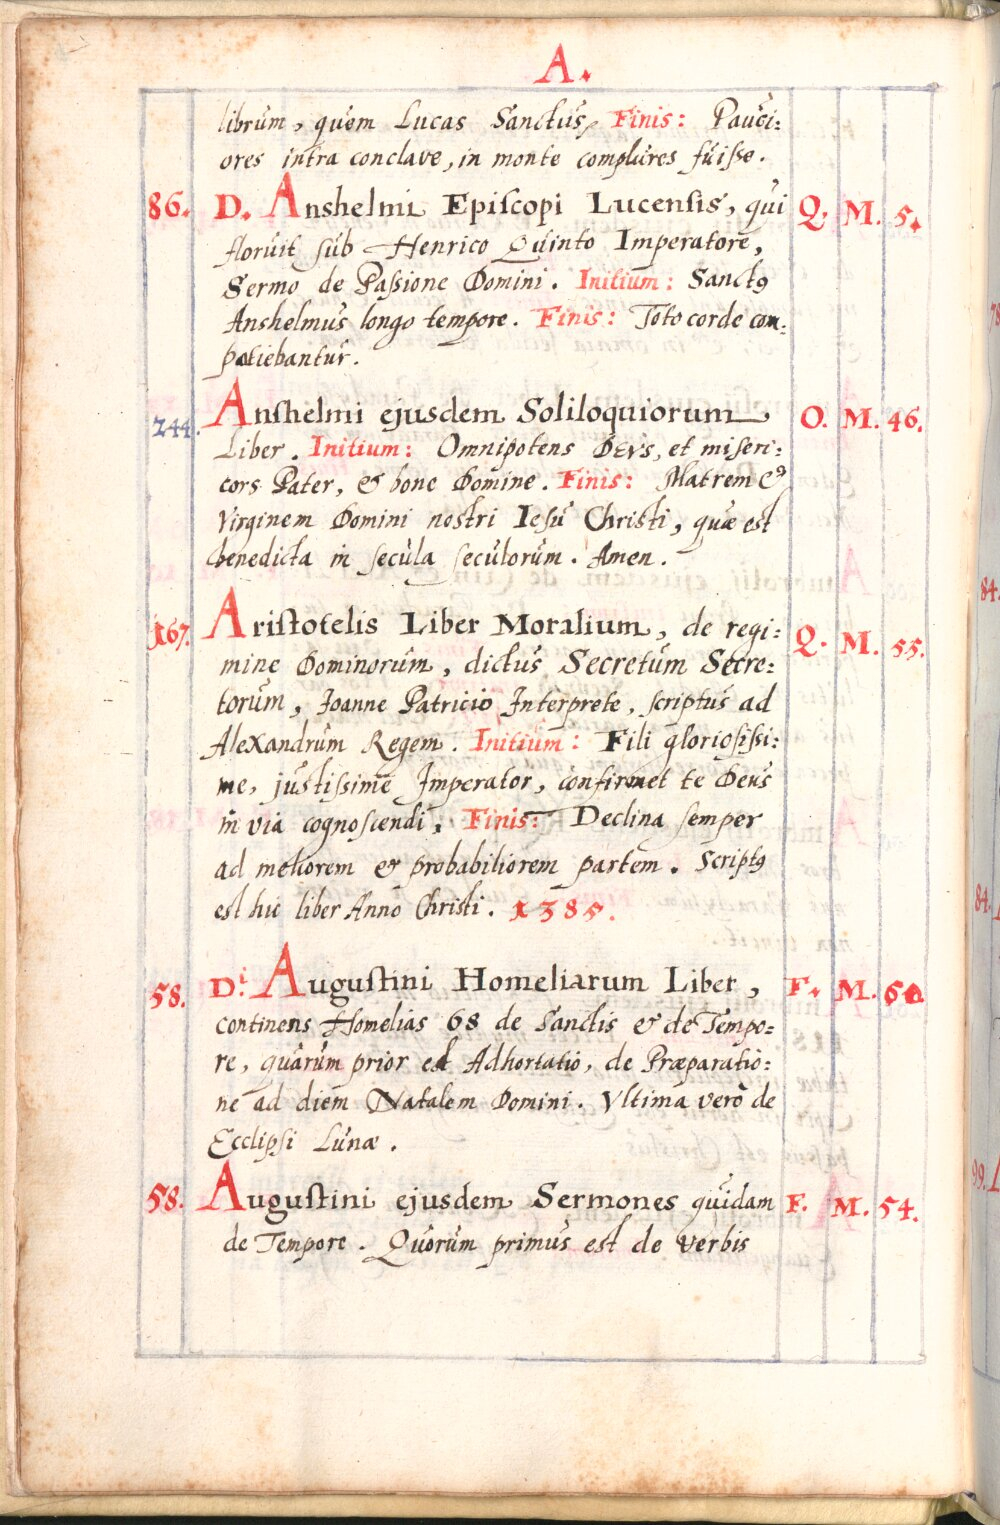 A.
librum, quem Lucas Sanctus, Finis: Pauci:
ores intra conclave, in monte complures fuisse.
86. D. Anshelmi Episcopi Lucensis, qui Q. M. 5.
floruit sub Henrico Quinto Imperatore,
Sermo de Passione Domini. Initium: Sanctꝰ
Anshelmus longo tempore. Finis: Toto corde com:
patiebantur.
244. Anshelmi ejusdem Soliloquiorum O. M. 46.
Liber. Initium: Omnipotens DEVS, et miseri:
cors Pater, & bone Domine. Finis: Matrem &
Virginem Domini nostri Iesu Christi, quæ est
benedicta in secula seculorum. Amen.
167. Aristotelis Liber Moralium, de regi: Q. M. 55.
mine Dominorum, dictus Secretum Secre:
torum, Ioanne Patricio Interprete, scriptus ad
Alexandrum Regem. Initium: Fili gloriosissi:
me, justissime Imperator, confirmet te Deus
in via cognoscendi, Finis: Declina semper
ad meliorem & probabiliorem partem. Scriptꝰ
est hic liber Anno Christi. 1385.
58. Di. Augustini Homeliarum Liber, F. M.
continens Homelias 68 de Sanctis & de Tempo:
re, quarum prior est Adhortatio, de Præparatio:
ne ad diem Natalem Domini. Vltima verò de
Ecclipsi Lunæ.
58. Augustini ejusdem Sermones quidam F. M. 54.
de Tempore. Quorum primus est de verbis
78
84.
84.
99.